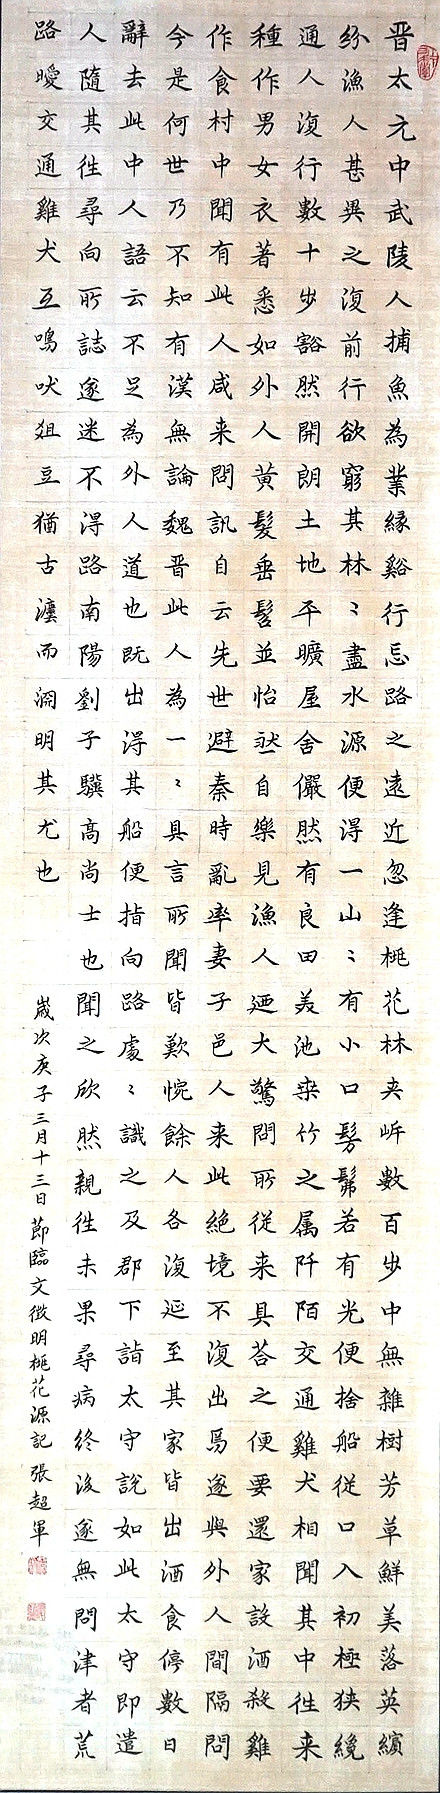 晉太元中武陵人捕魚為業緣谿行忘路之遠近忽逢桃花林夾岍數百步中無雜樹芳草鮮美落英繽
紛漁人甚異之復前行欲窮其林〻盡水源便得一山〻有小口髣髴若有光便捨船從口入初極狹纔
通人復行數十步豁然開朗土地平曠屋舍儼然有良田美池桒竹之属阡陌交通雞犬相聞其中往来
種作男女衣著悉如外人黃髮垂髫並怡然自樂見漁人迺大驚問所從来具荅之便要還家設酒殺雞
作食村中聞有此人咸来問訊自云先世避秦時亂率妻子邑人来此絕境不復出焉遂與外人間隔問
今是何世乃不知有漢無論魏晉此人為一〻具言所聞皆歎惋餘人各復延至其家皆出酒食停數日
辭去此中人語云不足為外人道也既出得其船便指向路處〻識之及郡下詣太守說如此太守即遣
人隨其往尋向所誌遂迷不得路南陽劉子驥高尚士也聞之欣然親往未果尋病終後遂無問津者荒
路曖交通雞犬互鳴吠俎豆猶古灋而淵明其尤也
歲次庚子三月十三日節臨文徵明桃花源記 張超軍